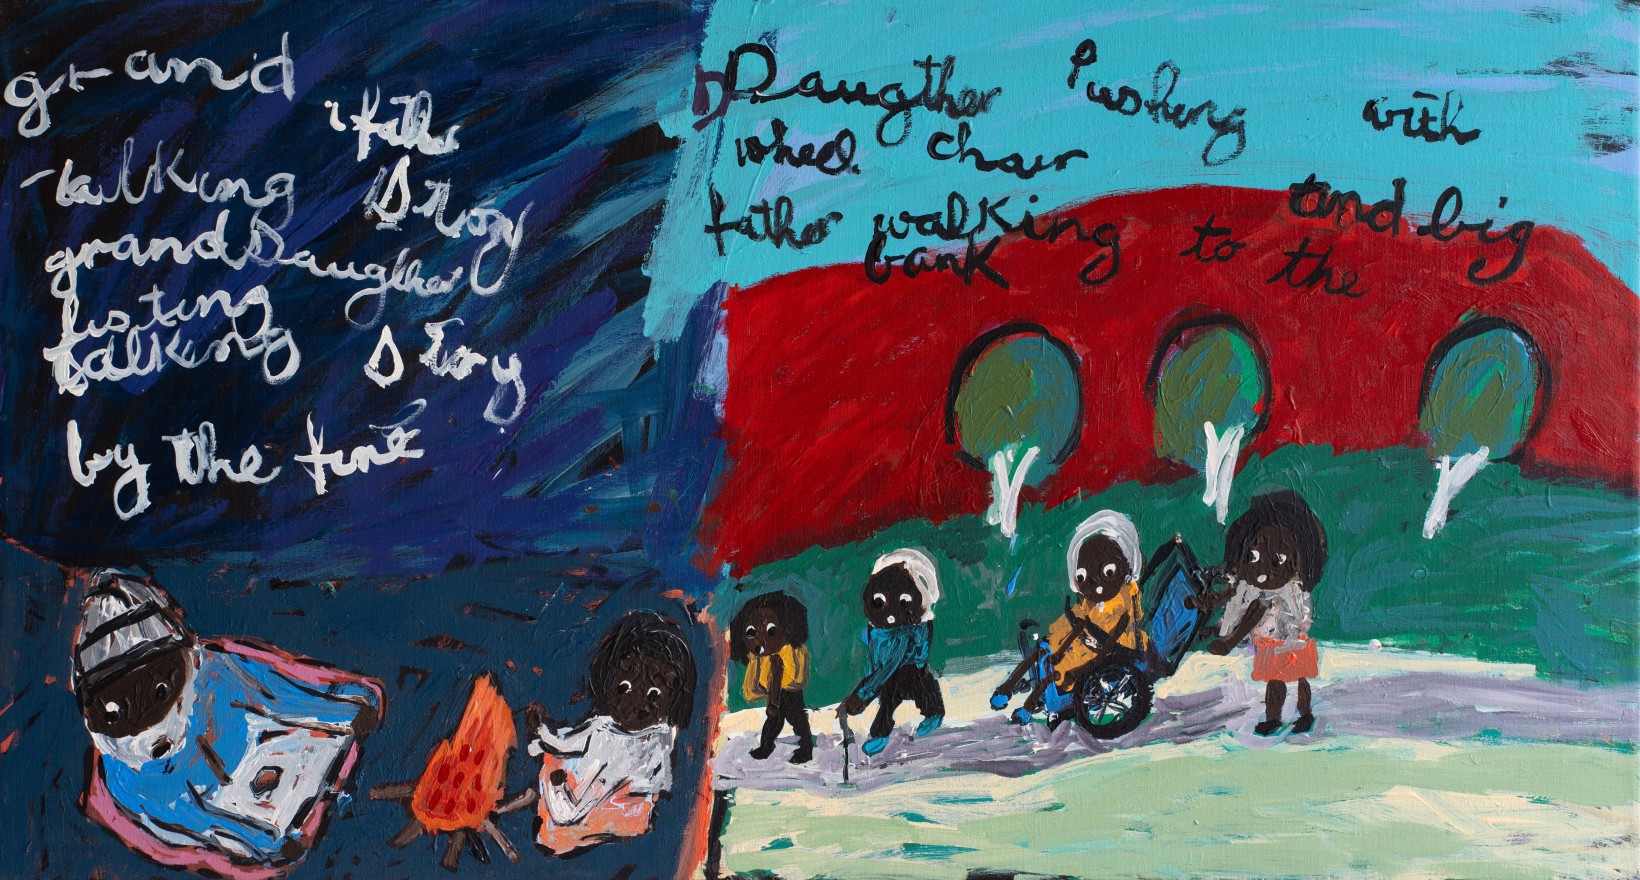 grand
father
talking Story
grandDaugther
listing
talking Story
by the fire
Daugther Pushing with
wheel chair
father walking to the and big
bank